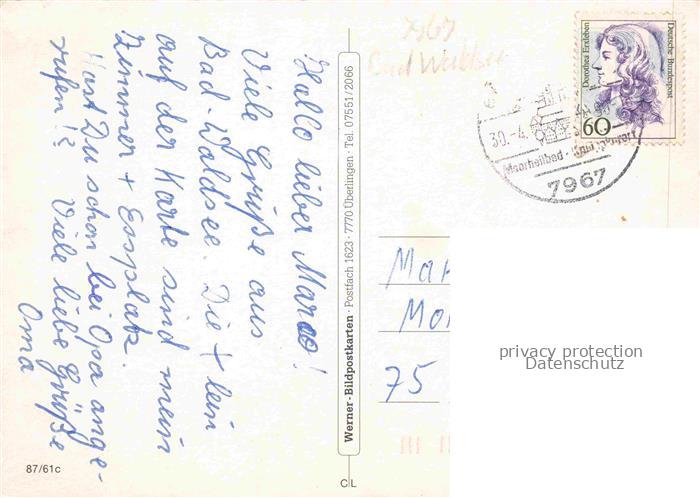 Hallo lieber Marco!
Viele Grüße aus
Bad-Waldsee. Die + lein
auf der Karte sind mein
Zimmer + Essplatz.
Hast Du schon bei Opa ange-
rufen!? Viele liebe Grüße
Oma
87/61c
Werner-Bildpostkarten · Postfach 1623 · 7770 Überlingen · Tel. 07551/2066
CL
7967
Bad Waldsee
Dorothea Erxleben
Deutsche Bundespost
60
30.-4.
Moorheilbad
7967
Ma
Mo
75
privacy protection
Datenschutz